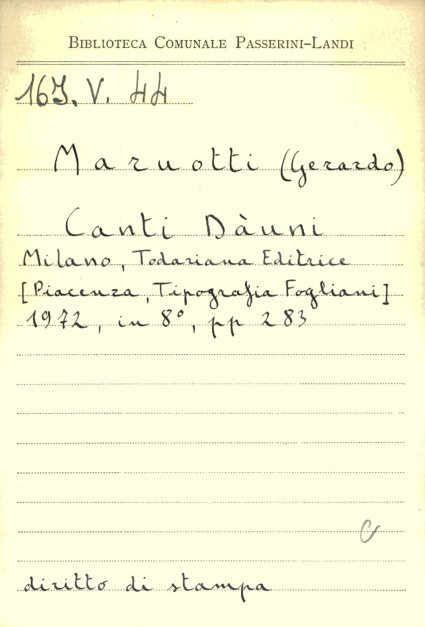 BIBLIOTECA COMUNALE PASSERINI-LANDI
16J. V. 44
Maruotti (Gerardo)
Canti Dàuni
Milano, Todariana Editrice
[Piacenza, Tipografia Fogliani]
1972, in 8°, pp 283
C
diritto di stampa